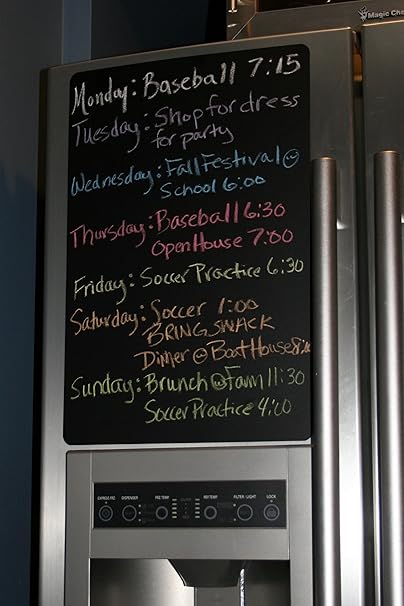 Magic Cha
Monday: Baseball 7:15
Tuesday: Shop for dress
for party
Wednesday: Fall Festival @
School 6:00
Thursday: Baseball 6:30
Open House 7:00
Friday: Soccer Practice 6:30
Saturday: Soccer 1:00
BRING SNACK
Dinner @ Boat House
Sunday: Brunch @ Farm 11:30
Soccer Practice 4:00
EXPRESS FRZ DISPENSER FRZ TEMP REF TEMP FILTER / LIGHT LOCK